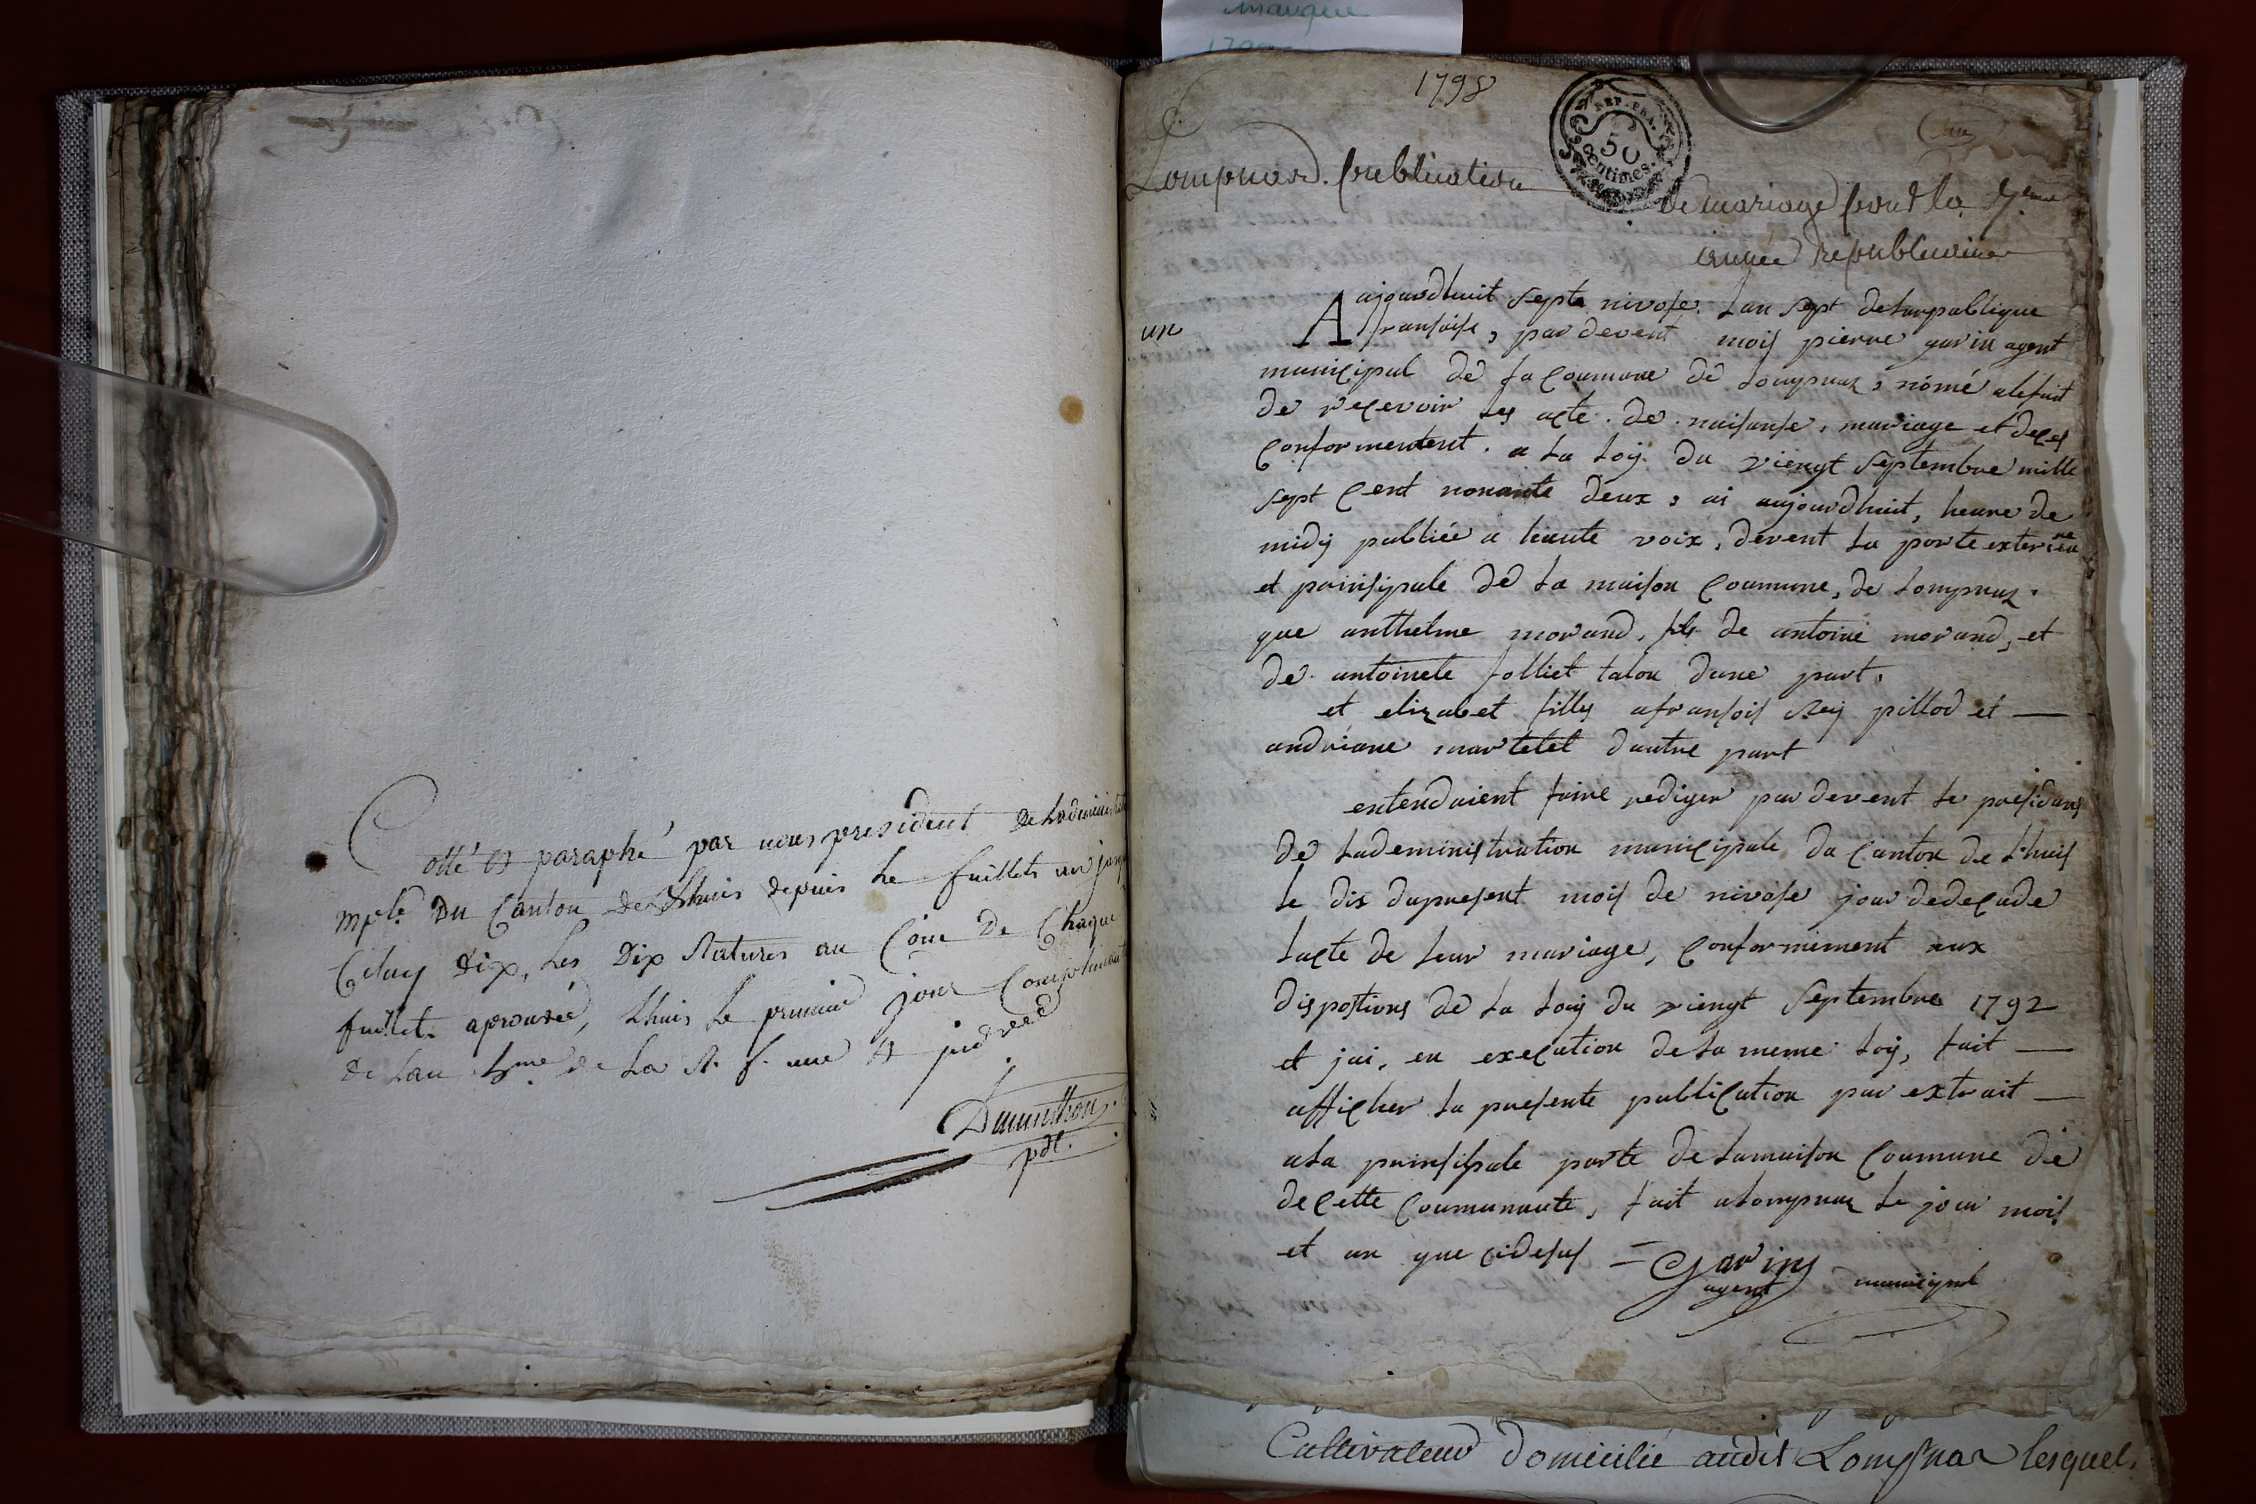 manque
Cotté et paraphé par nous president de Ladminist
mple Du Canton de Lhuis depuis Le fuillets un jusq
Celuy dix, Les Dix Natures au Coin de Chaque
fuillets aprouvée, Lhuis Le premier jour Complementaire
de Lan 6me de La R. f. une et
Dumolthon
pdt.
1798
REP. FRA.
50
centimes
Lompnas. publication
de mariage pour la 7eme
année republicaine
un
Aujourdhuit septe nivose Lan sept delarpublique
fransoise, par devent mois pierre garin agent
municipal de la Coumune de Lompnaz, nomé alefait
de recevoir les acte de naisanse, mariage et deces
Conformentent a La Loÿ du viengt septembre mille
sept Cent nonante deux, ai aujourdhuit, heure de
midÿ publiée a haute voix, devent La porte exterieure
et prinsipale de La maison Coumune, de Lompnaz.
que anthelme morand, fils de antoine morand, et
de antoinete Jolliet talon dune part,
et elizabet filles afransois Reÿ pillod et
andriane martelet dautre part
entendoient faire rediger par devent le presidans
de Ladeministration municipale du Canton de Lhuis
le dis dupresent mois de nivose jour dedecade
lacte de Leur mariage, Conformiment aux
dispostions de La Loÿ du viengt septembre 1792
et jai, en execution de La meme Loÿ, fait
afficher La presente publication par extrait
ala prinsipale porte de Lamaison Coumune die
decette Coumunaute, fait aLompnaz Le jour mois
et an que cidesus = Garin
agent municipal
Cultivateur domicilié audit Lompnas lesquel